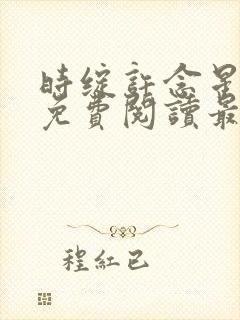 时綻許念星
免費閱讀最
程紅已